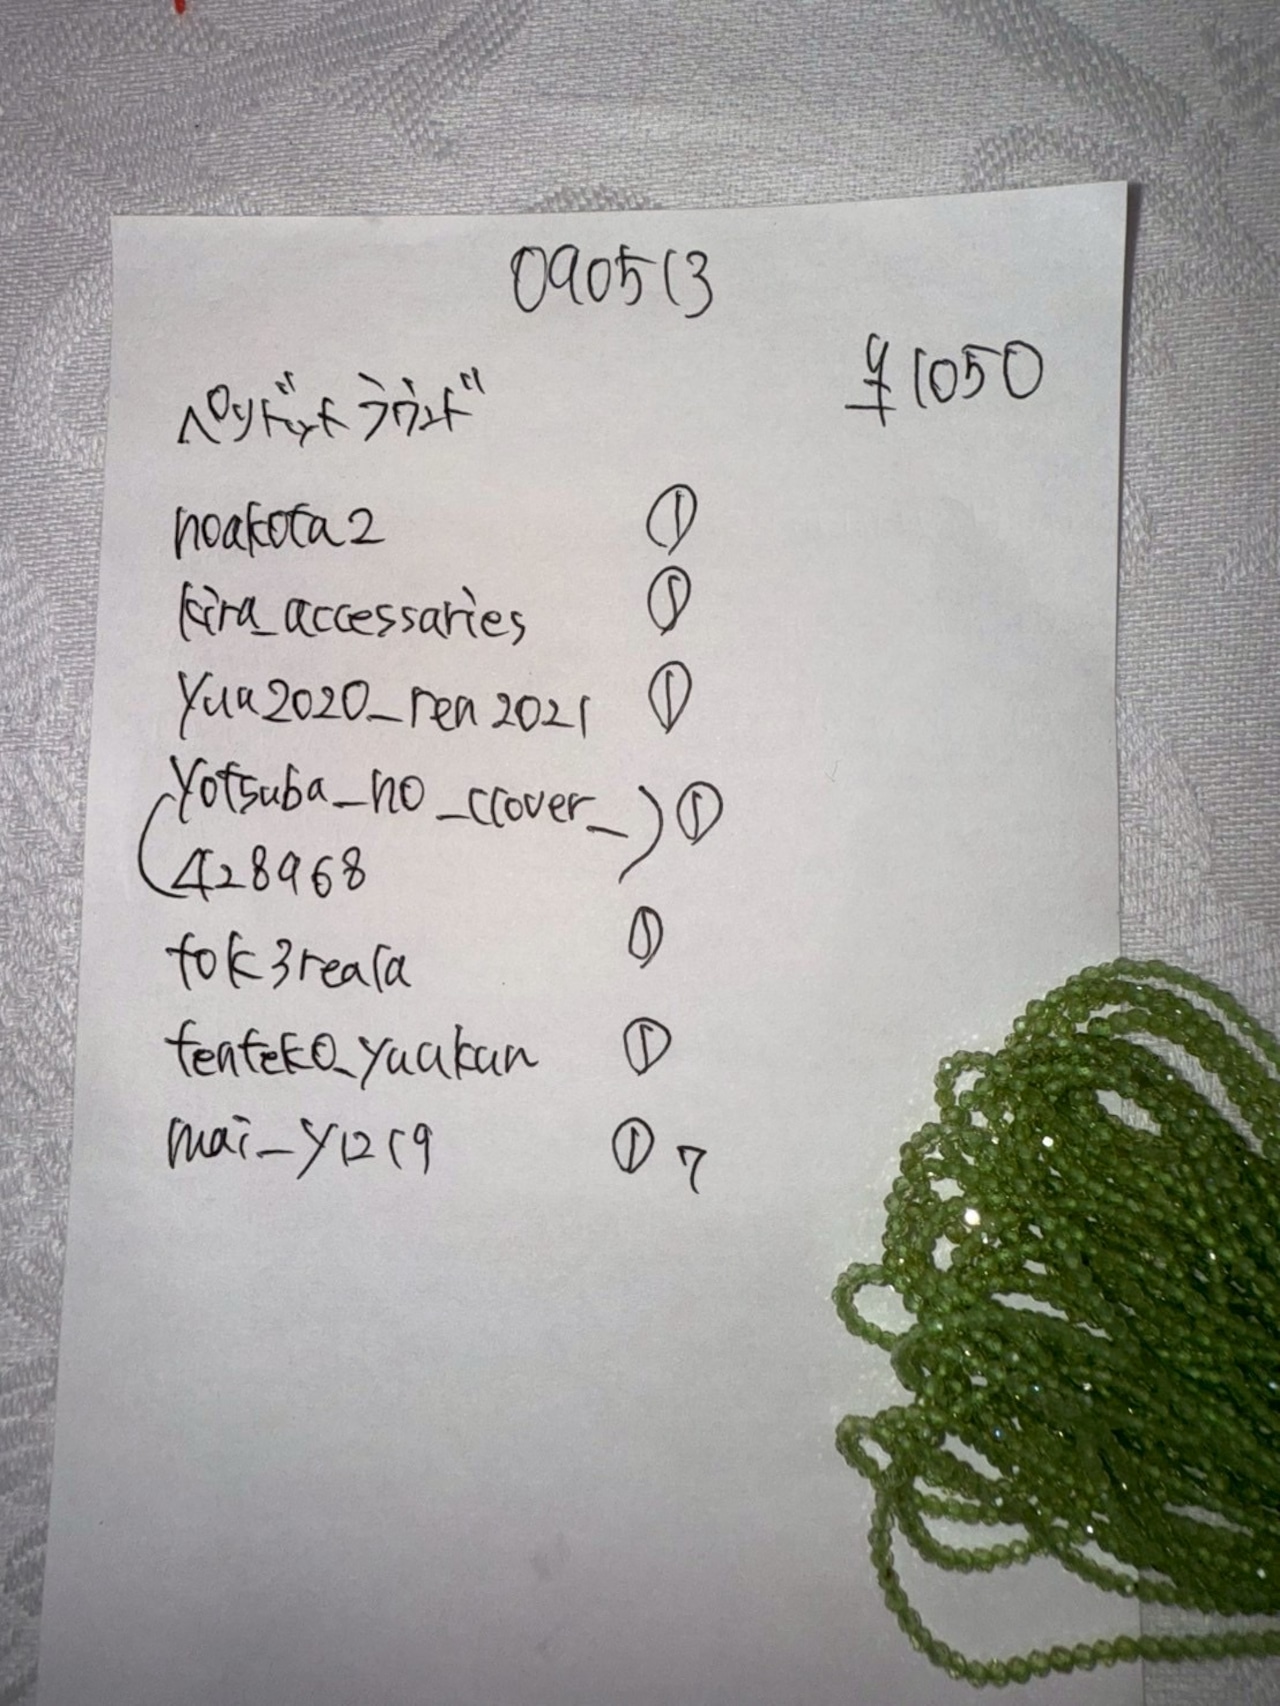 090513
¥1050
ペリドットラウンド
noakota2 ①
kira_accessaries ①
yuu2020_ren2021 ①
(yotsuba_no_clover_) ①
428968
tok3reala ①
tenteko_yuukun ①
mai_y1219 ① 7